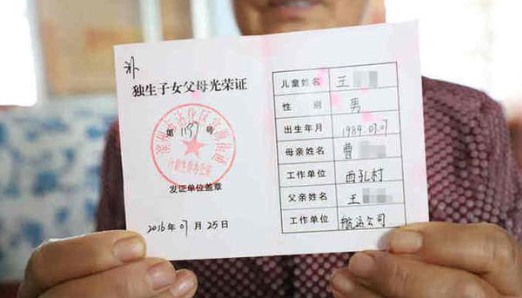 补
独生子女父母光荣证
第 1157 号
计划生育办公室
发证单位盖章
2016 年 07 月 25 日
儿童姓名 王
性 别 男
出生年月 1984.07.07
母亲姓名 曹
工作单位 西孔村
父亲姓名 王
工作单位 航运公司